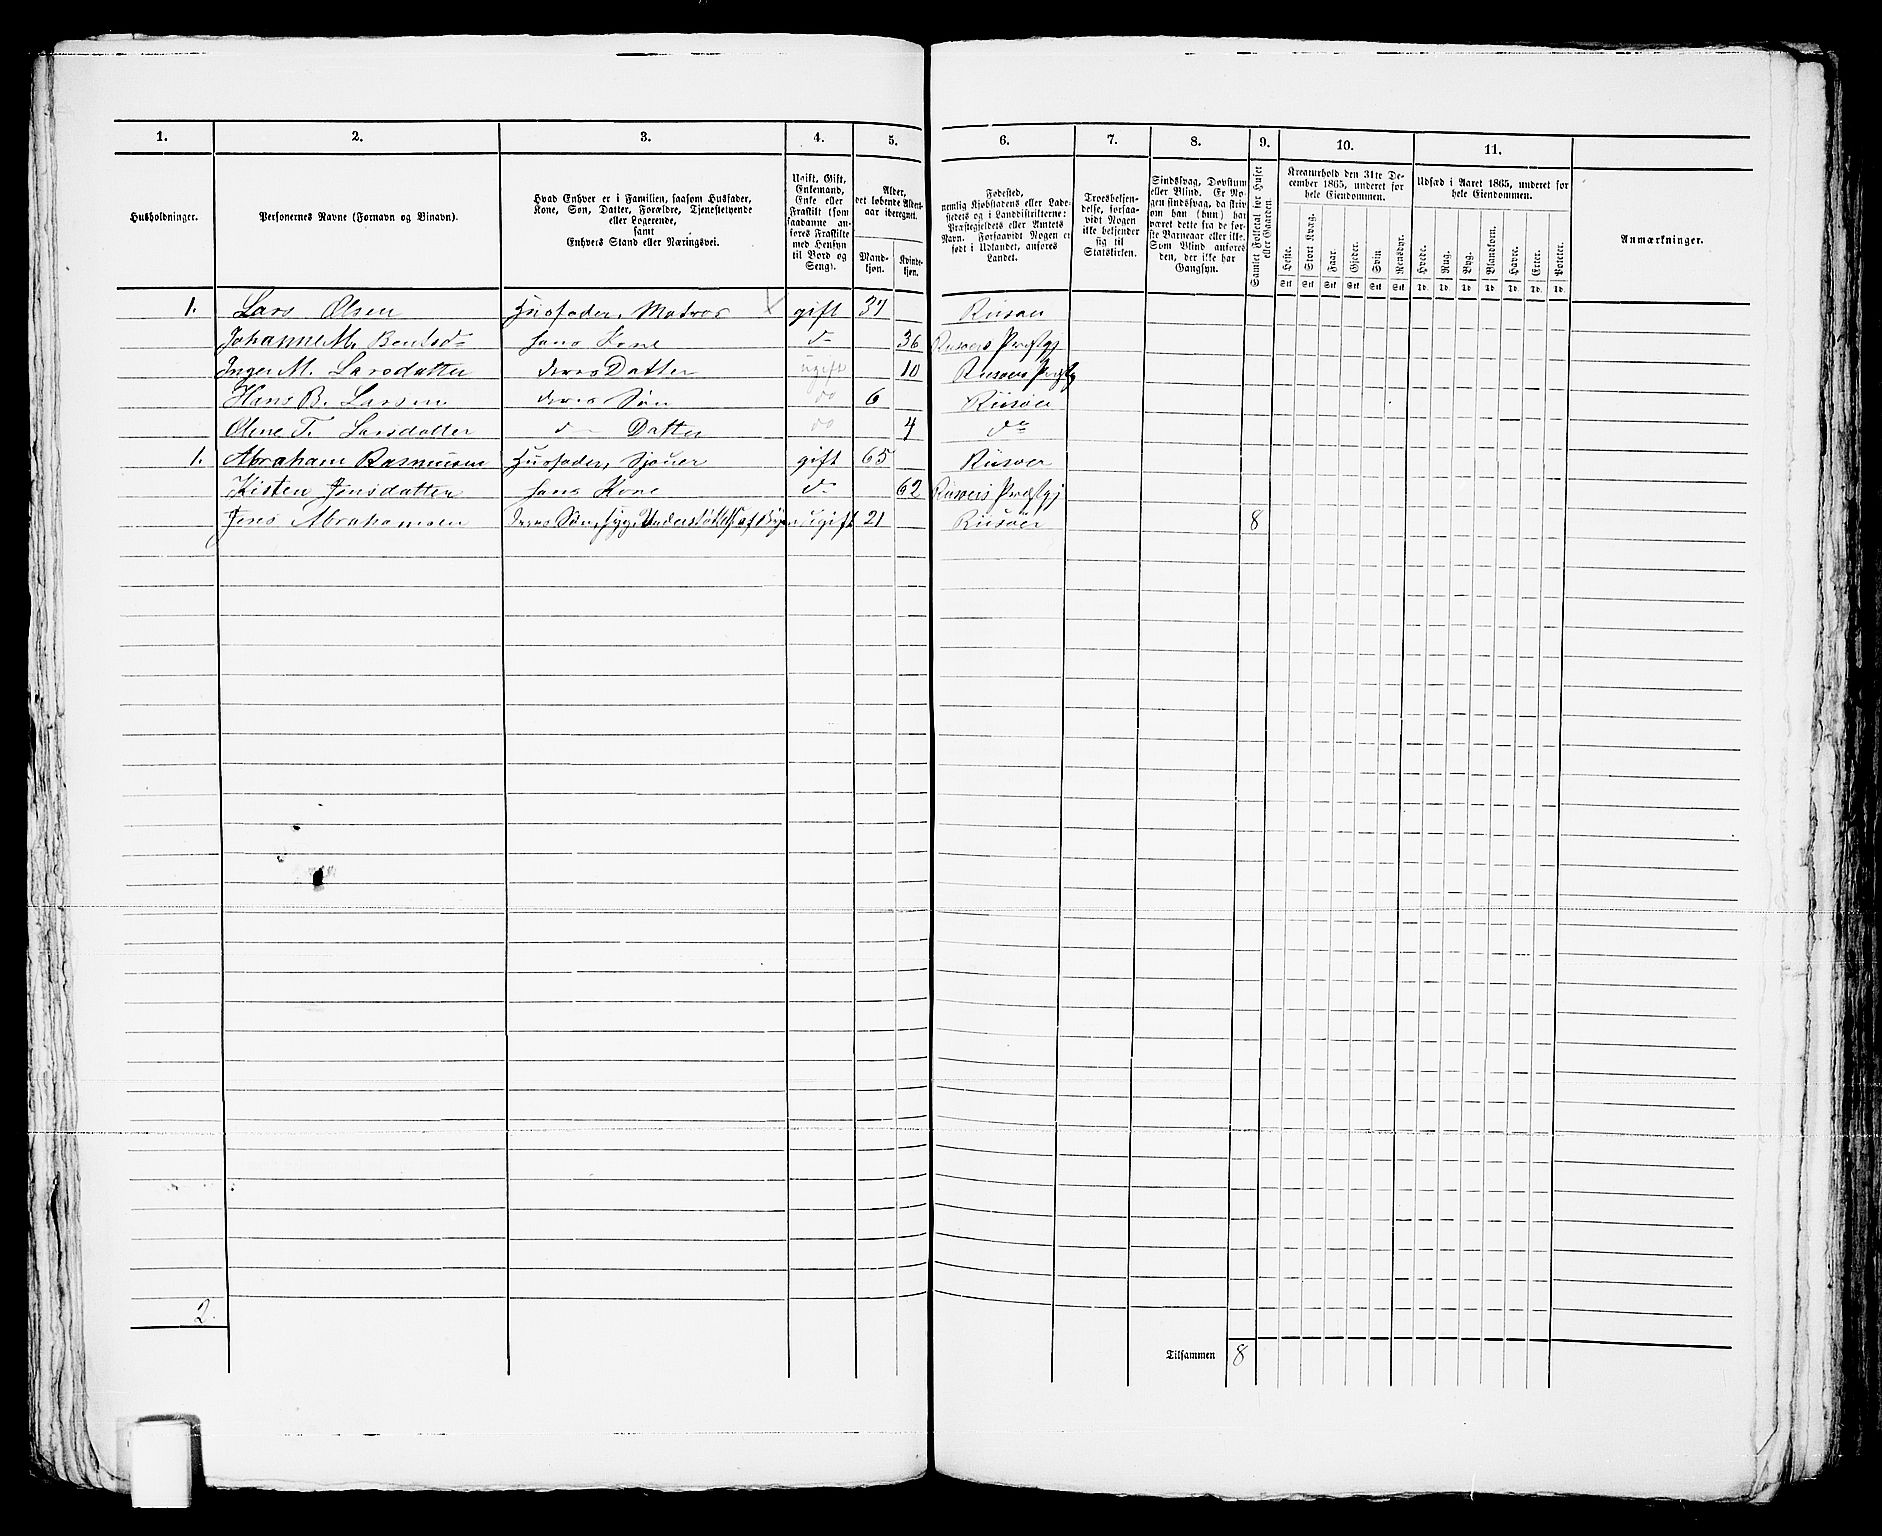 1. 2. 3. 4. 5. 6. 7. 8. 9. 10. 11.
Husholdninger.
Personernes Navne (Fornavn og Tilnavn).
Hvad Enhver er i Familien, saasom Husfader,
Kone, Søn, Datter, Forældre, Tjenestetyende
eller Logerende,
samt
Enhvers Stand eller Næringsvei.
Ugift, Gift,
Enkemand,
Enke eller
Fraskilt (som
saadanne an-
føres Fraskilte
med Hensyn
til Bord og
Seng).
Alder,
det løbende Alders-
aar iberegnet.
Mand-
kjøn.
Kvinde-
kjøn.
Fødested,
nemlig Kjøbstadens eller Lade-
stedets og i Landdistrikterne:
Præstegjeldets eller Amtets
Navn. Forsaavidt Nogen er
født i Udlandet, anføres
Landet.
Troesbekjen-
delse, forsaa-
vidt Nogen
ikke bekjender
sig til
Statskirken.
Sindssvag, Døvstum
eller Blind. Er No-
gen sindssvag, da skriv
om han (hun) har
været dette fra de før-
ste Barneaar eller ikke.
Som Blind anføres
den, der ikke har
Gangsyn.
Samlet Folketal for Huset
eller Gaarden.
Kreaturhold den 31te De-
cember 1865, underet for
hele Eiendommen.
Heste. Stort Kvæg. Faar. Gjeder. Svin Rensdyr.
Stk Stk Stk Stk Stk Stk
Udsæd i Aaret 1865, underet for
hele Eiendommen.
Hvede. Rug. Byg. Blandkorn. Havre. Erter. Poteter.
Td. Td. Td. Td. Td. Td. Td.
Anmærkninger.
1. Lars Olsen Husfader, Matros gift 37 Riisøer
Johanne M. Bentsd hans Kone do 36 Riisøers Præstgj
Inger M. Larsdatter deres Datter ugift 10 Riisøers Prstgj
Hans B. Larsen deres Søn do 6 Riisøer
Oline T. Larsdatter do Datter do 4 do
1. Abraham Rasmusen Husfader, Sjouer gift 65 Riisøer
Kisten Jensdatter hans Kone do 62 Riisøers Præstgj
Jens Abrahamsen deres Søn, syg, Understøttes af Byen ugift 21 Riisøer 8
2.
Tilsammen 8